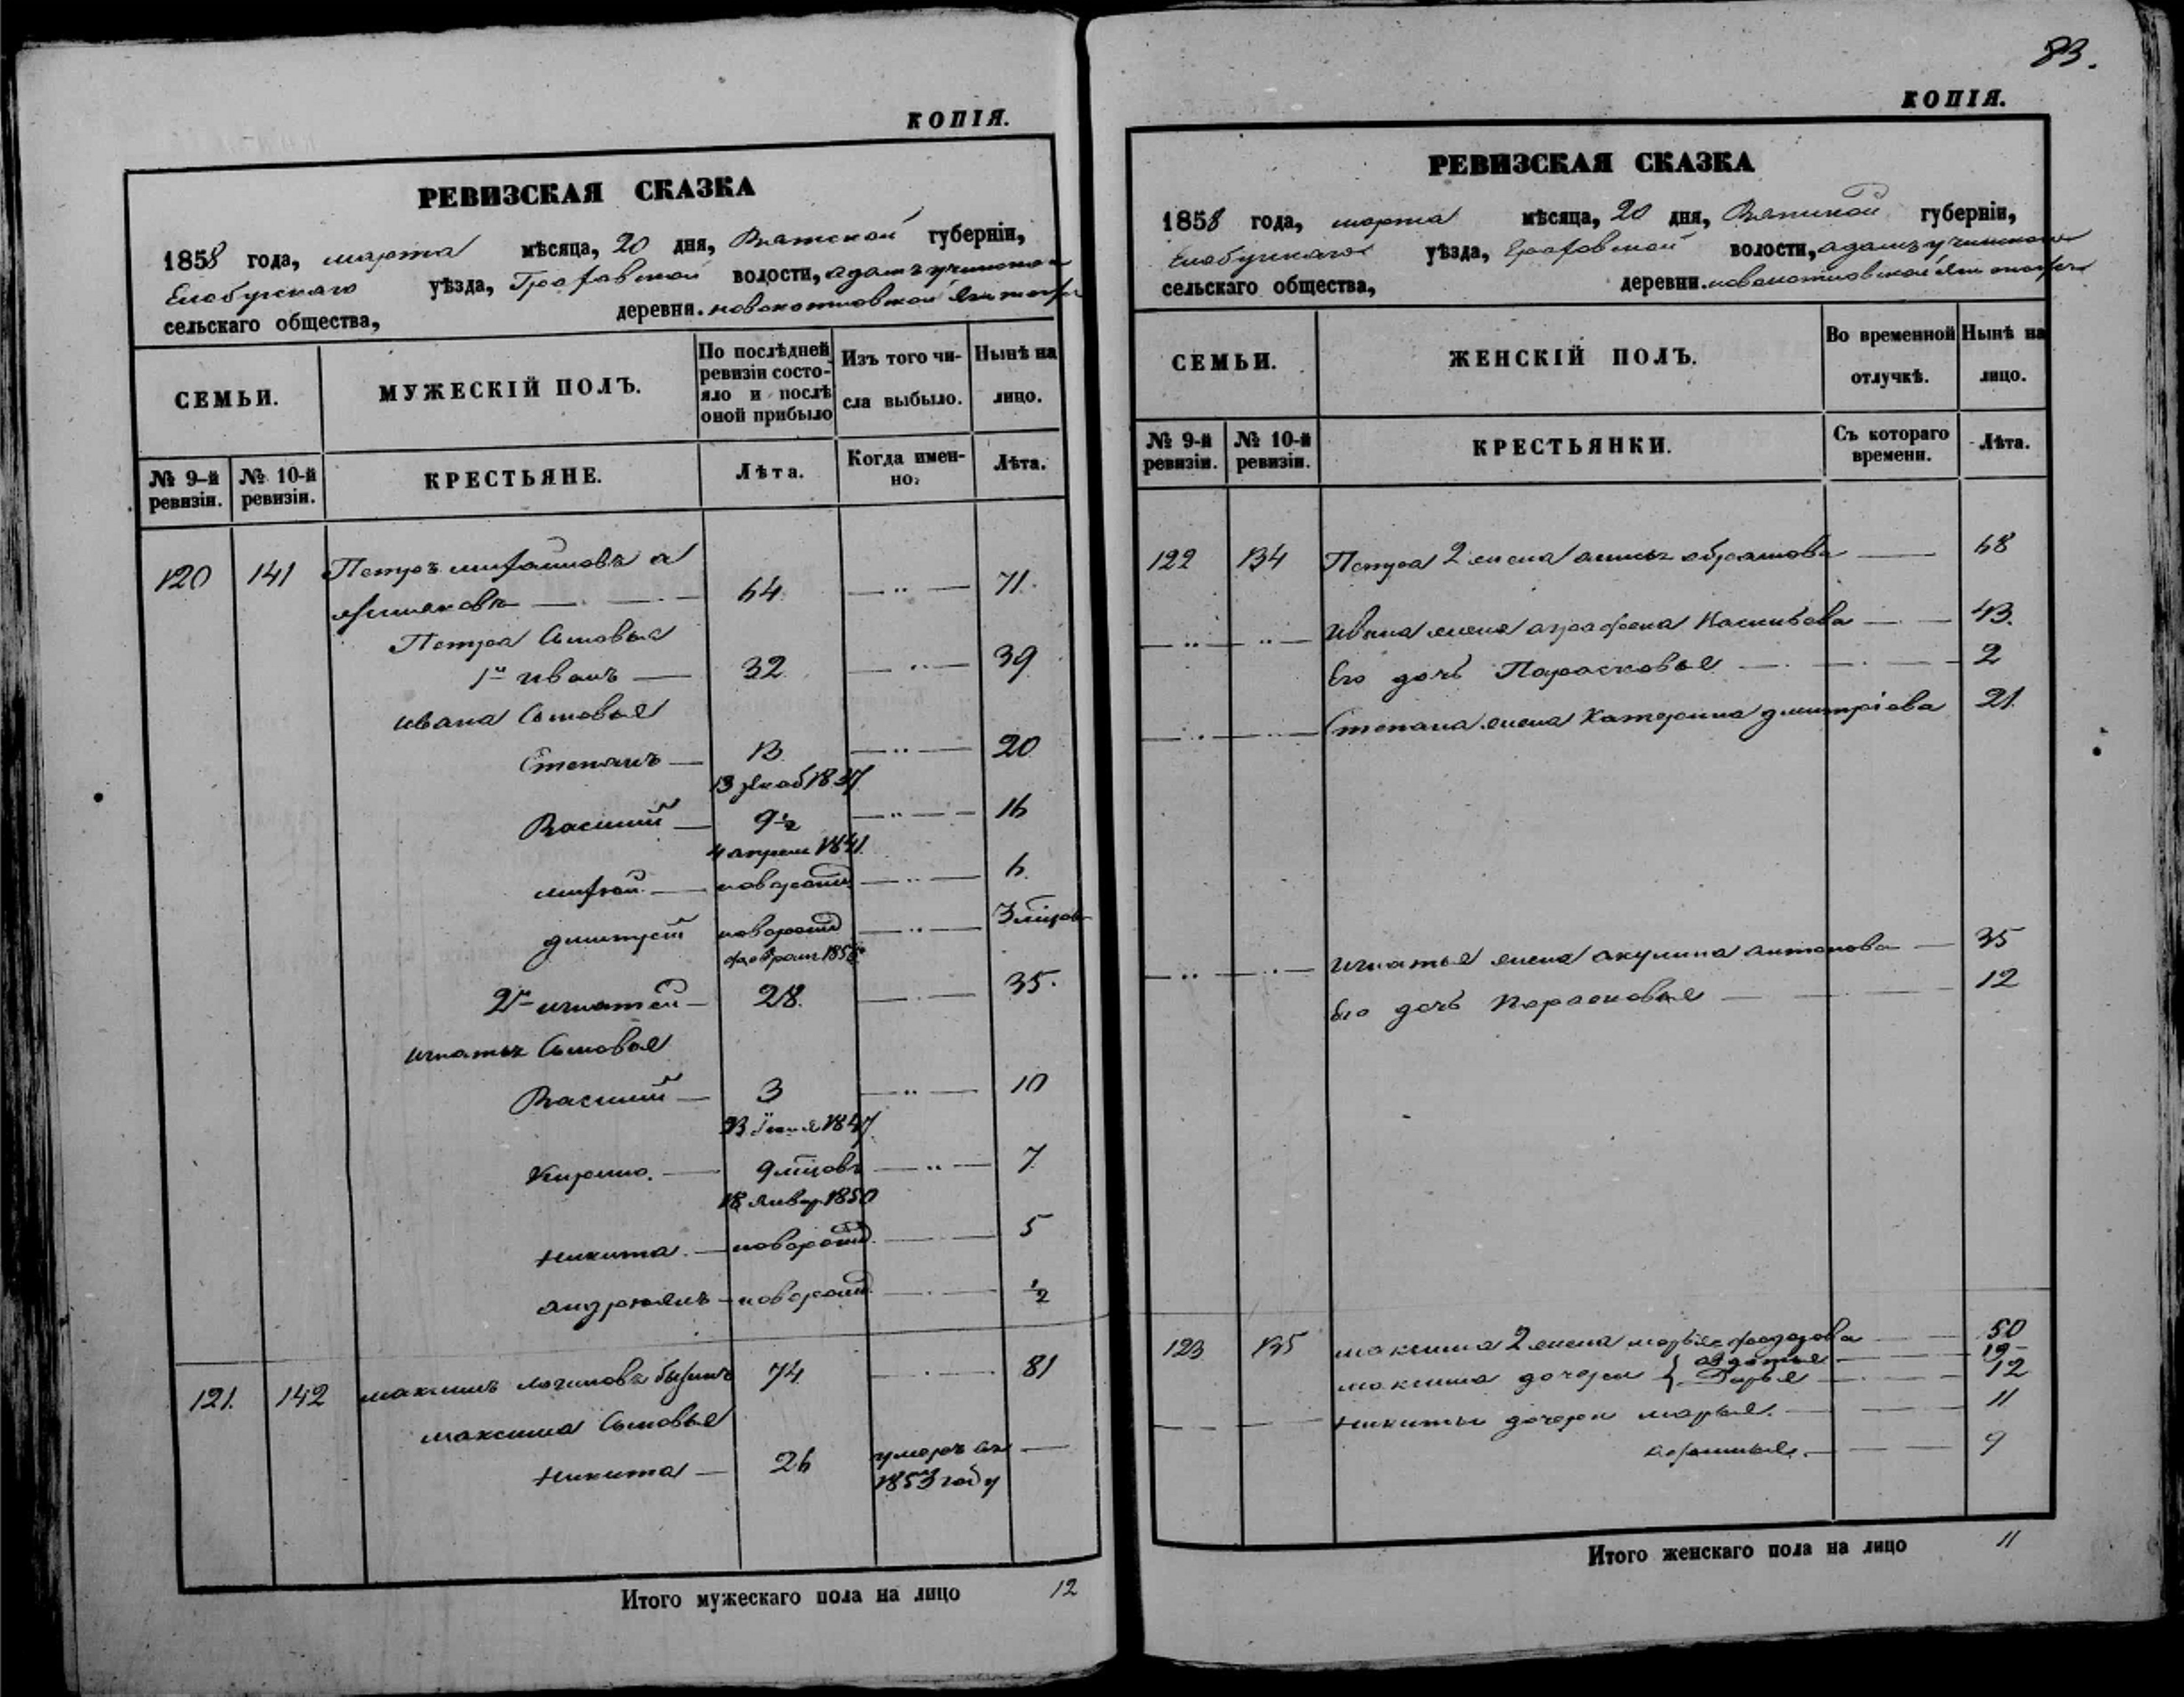 КОПІЯ.
РЕВИЗСКАЯ СКАЗКА
1858 года, марта мѣсяца, 20 дня, Вятской губерніи,
Елабужскаго уѣзда, Граховской волости,
сельскаго общества, деревни.
СЕМЬИ.
МУЖЕСКІЙ ПОЛЪ.
По послѣдней ревизіи состояло и послѣ оной прибыло
Изъ того числа выбыло.
Нынѣ на лицо.
№ 9-й ревизіи.
№ 10-й ревизіи.
КРЕСТЬЯНЕ.
Лѣта.
Когда именно.
Лѣта.
120 141 Петръ Михайловъ а
64 71.
Петра Сыновья
1й Иванъ 32 39
Ивана Сыновья
Степанъ 13 20
13 декаб 1837
Василий 9 1/2 16
4 апреля 1841
Михей новорожд 6
Дмитрей новорожд 3 мцов
феврал 1858
2й Игнатей 28. 35.
Игнатья Сыновья
Василий 3 10
1847
Кирило. 9 мцовъ 7
18 Январ 1850
Никита. новорожд 5
Андреянъ новорожд 1/2
121. 142 Максимъ 74 81
Максима Сыновья
Никита 26 умеръ въ
1853 году
Итого мужескаго пола на лицо 12
83.
КОПІЯ.
РЕВИЗСКАЯ СКАЗКА
1858 года, марта мѣсяца, 20 дня, Вятской губерніи,
Елабужскаго уѣзда, Граховской волости,
сельскаго общества, деревни.
СЕМЬИ.
ЖЕНСКІЙ ПОЛЪ.
Во временной отлучкѣ.
Нынѣ на лицо.
№ 9-й ревизіи.
№ 10-й ревизіи.
КРЕСТЬЯНКИ.
Съ котораго времени.
Лѣта.
122 134 Петра 2 жена Анисья Абрамова 68
Ивана жена Аграфена 43.
Его дочь Парасковья 2
Степана жена Катерина Дмитріева 21.
Игнатья жена Акулина Антонова 35
Его дочь Парасковья 12
123 135 Максима 2 жена Марья Феодорова 50
Максима дочери { Авдотья 19
Дарья 12
Никиты дочери Марья. 11
Афимья. 9
Итого женскаго пола на лицо 11